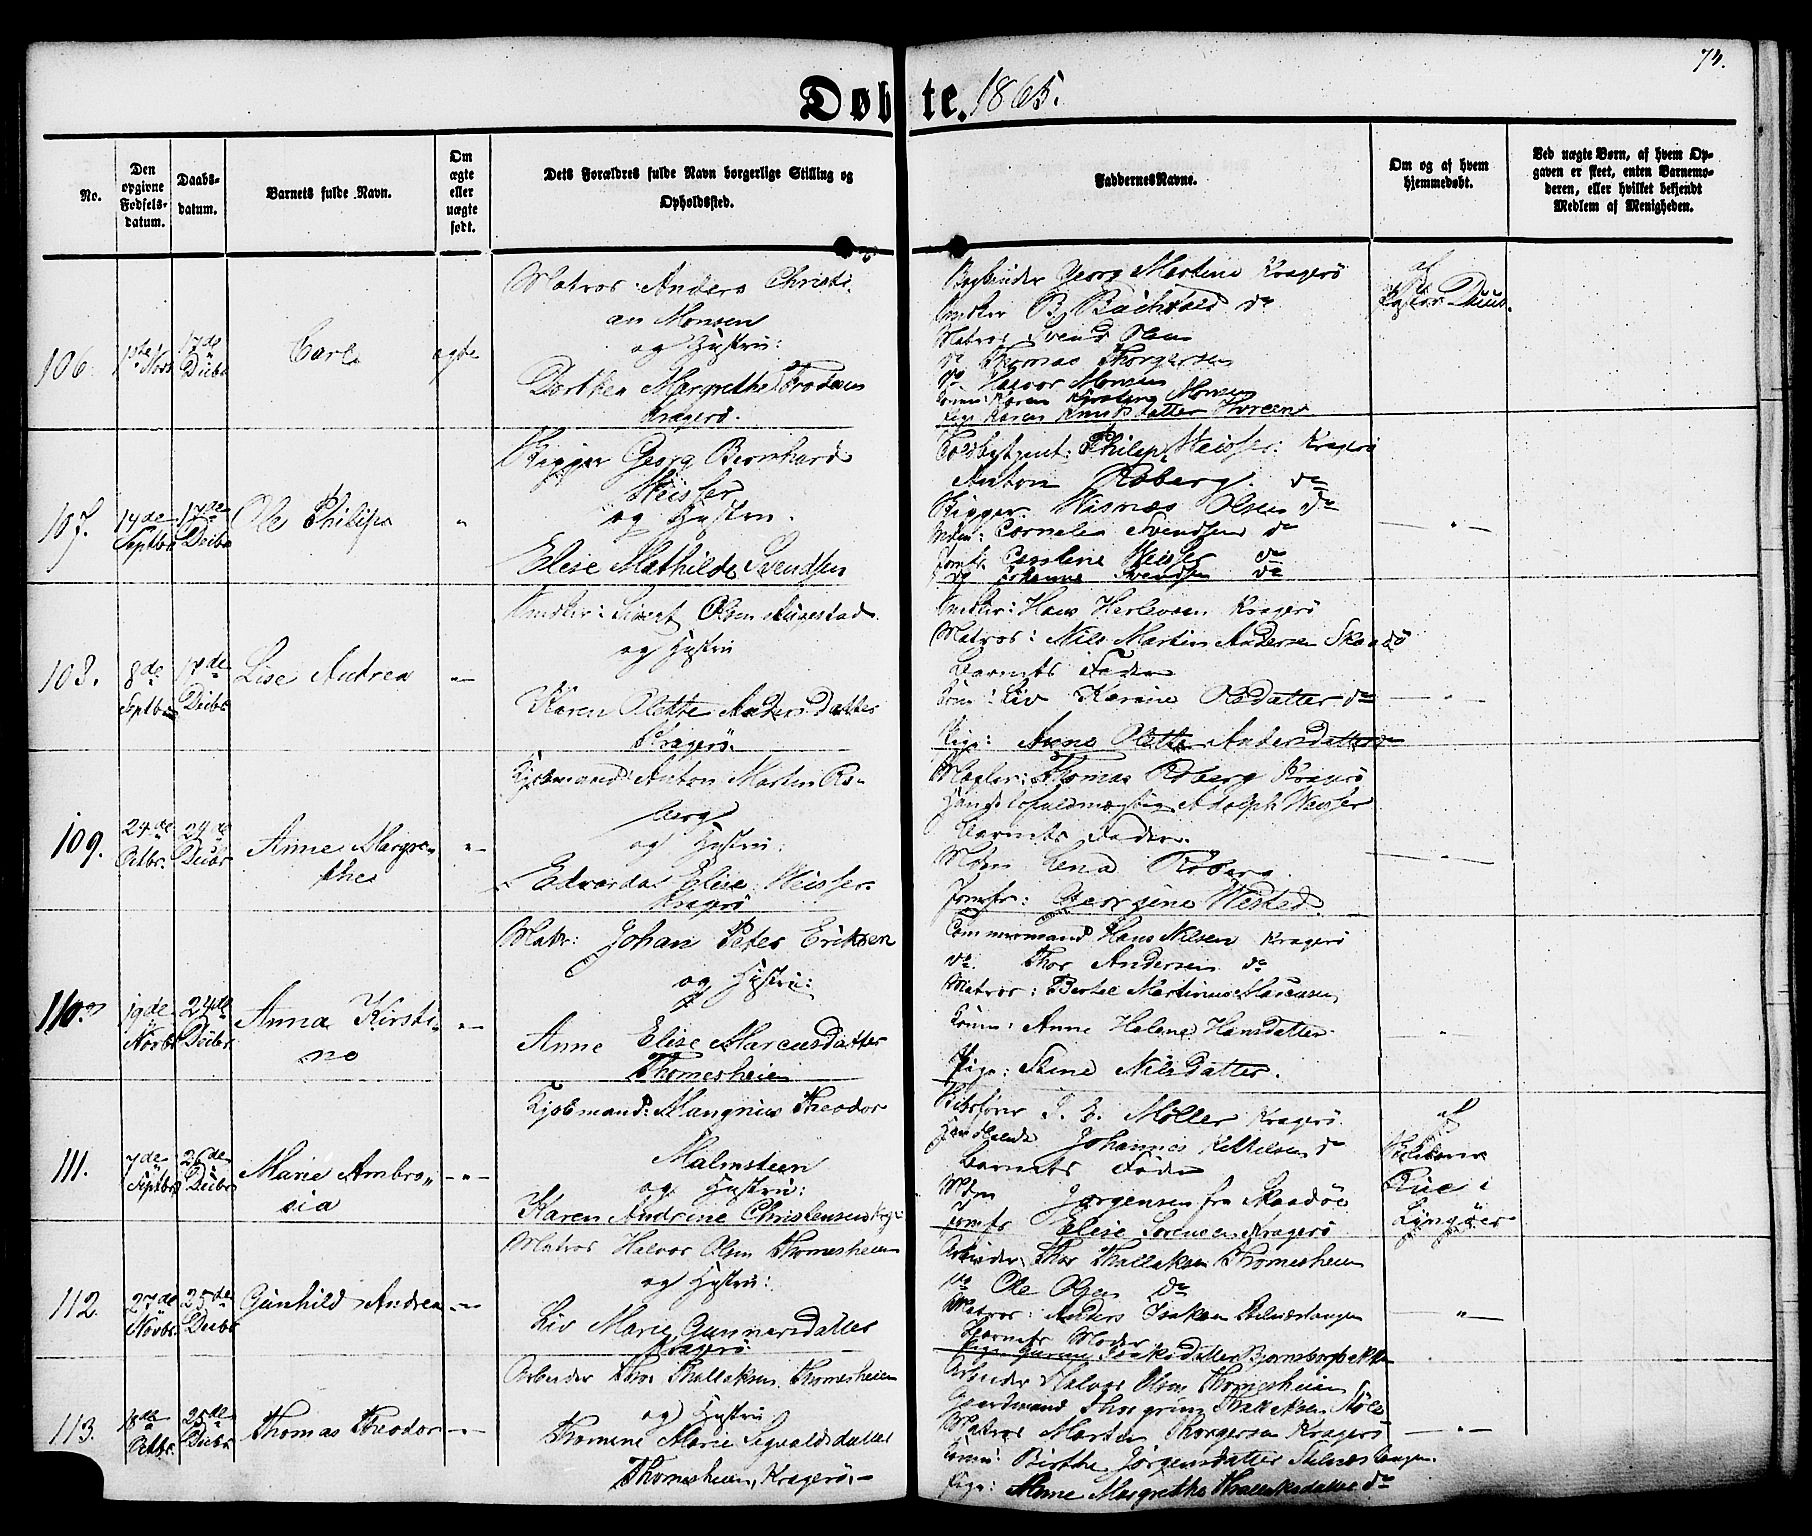 73.
Døbte. 1865.
No.
Den opgivne Fødsels-datum.
Daabs-datum.
Barnets fulde Navn.
Om ægte eller uægte født.
Dets Forældres fulde Navn borgerlige Stilling og Opholdssted.
Faddernes Navne.
Om og af hvem hjemmedøbt.
Ved uægte Børn, af hvem Opgaven er skeet, enten Barnemoderen, eller hvilket bekjendt Medlem af Menigheden.
106. 1ste Novb 17de Decbr Carl ægte
Matros: Anders Christi-
an Monsen
og Hustru:
Dorthea Margrethe
Kragerö.
Bogbinder Georg Martens Kragerö
Matros Svend Olsen
do Thomas Thorgersen
do Halvor Monsen
Pige Karen Knudsdatter
af
Pastor
107. 14de Septbr 17de Decbr Ole Philip "
Rigger Georg Bernhard
Weisser
og Hustru.
Elise Mathilde Svendsen
Philip Weisser: Kragerö
Anton Roberg. do
Rigger Olsen do
Mdm: Cornelia Svendsen do
Jomfr. Caroline Weisser do
do Johanne Svendsen do
"
108. 8de Septbr 17de Decbr Lise Andrea "
Sivert Olsen Augestad
og Hustru
Karen Olette Andersdatter
Kragerö.
Hans Herlevsen Kragerö
Matros: Nils Martin Andersen Skaadö
Barnets Fader
Kone: Liv Karine Olsdatter do
Pige: Anne Olette Andersdatter do
"
109. 24de Octbr. 24de Decbr Anne Margre-
the "
Kjöbmand: Anton Martin Ro-
berg
og Hustru:
Edvarda Elise Weisser.
Kragerö
Mægler: Thomas Roberg Kragerö
Adolph Weisser
Barnets Fader.
Mdm Lena Roberg.
Jomfr: Georgine Wested.
"
110. 19de Novbr 24de Decbr Anna Kirsti-
ne "
Matr: Johan Peter Eriksen
og Hustru:
Anne Elise Marcusdatter
Thomesheien
Tømmermand Hans Nilsen Kragerö
do. Thor Andersen do
Matros: Bertel Martinus
Kone: Anne Helene Hansdatter
Pige: Stine Nilsdatter.
"
111. 7de Septbr 26de Decbr Marie Ambro-
sia "
Kjöbmand: Mangnus Theodor
Malmsteen
og Hustru:
Karen Andrine Christensen Krag-
J. E. Møller Kragerö.
Johannes Kittelsen do
Barnets Fader
Mdm Jørgensen fra Skaadöe
Jomfr Elise Sörensen Kragerö
af
Lyngöer
112. 27de Novbr. 25de Decbr Gunhild Andrea "
Matros Halvor Olsen Thomesheien
og Hustru:
Liv Marie Gunnersdatter
Kragerö
Arbeider Thor Thallaksen Thomesheien
do Ole Olsen do
Matros: Anders Isaksen
Barnets Moder
"
113. 18de Octbr. 25de Decbr Thomas Theodor "
Arbeider Thor Thallaksen Thomesheien
og Hustru
Thomine Marie Sigvaldsdatter
Thomesheien, Kragerö.
Arbeider Halvor Olsen Thomesheien
Gaardmand Thorgrim Thallaksen Stöle
Matros Morten Thorgersen Kragerö
Kone: Birthe Jörgensdatter
Pige: Anne Margrethe Thallaksdatter do
"